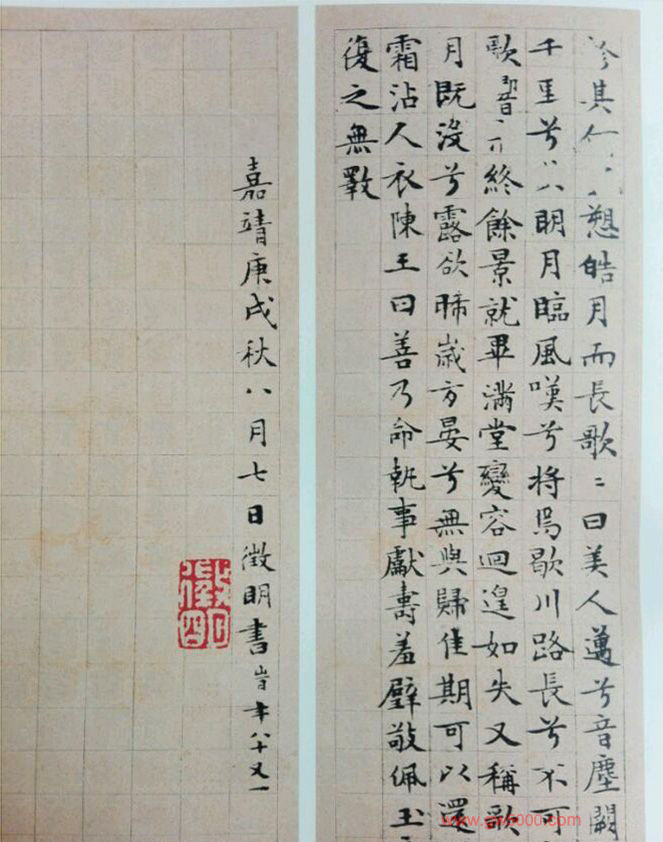 軫其愬皓月而長歌〻曰美人邁兮音塵闕
千里兮明月臨風嘆兮將焉歇川路長兮不可
歌終餘景就畢滿堂變容迴遑如失又稱歌
月既沒兮露欲晞歲方晏兮無與歸佳期可以還
霜沾人衣陳王曰善乃命執事獻壽羞璧敬佩玉
復之無斁
嘉靖庚戌秋八月七日徵明書時年八十又一
徵明